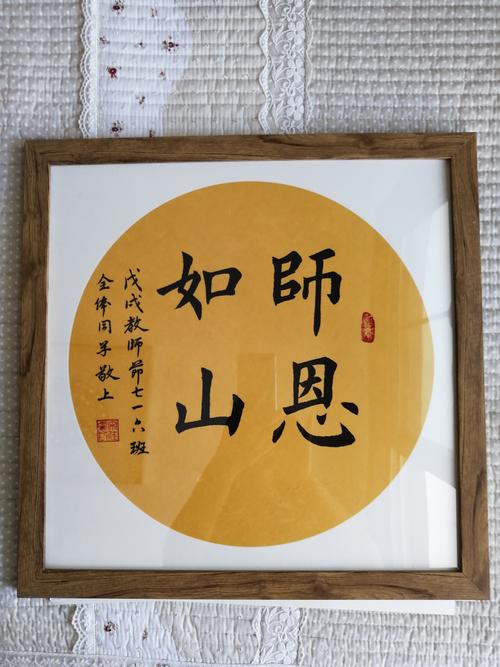 師恩
如山
戊戌教師節七一六班
全体同学敬上